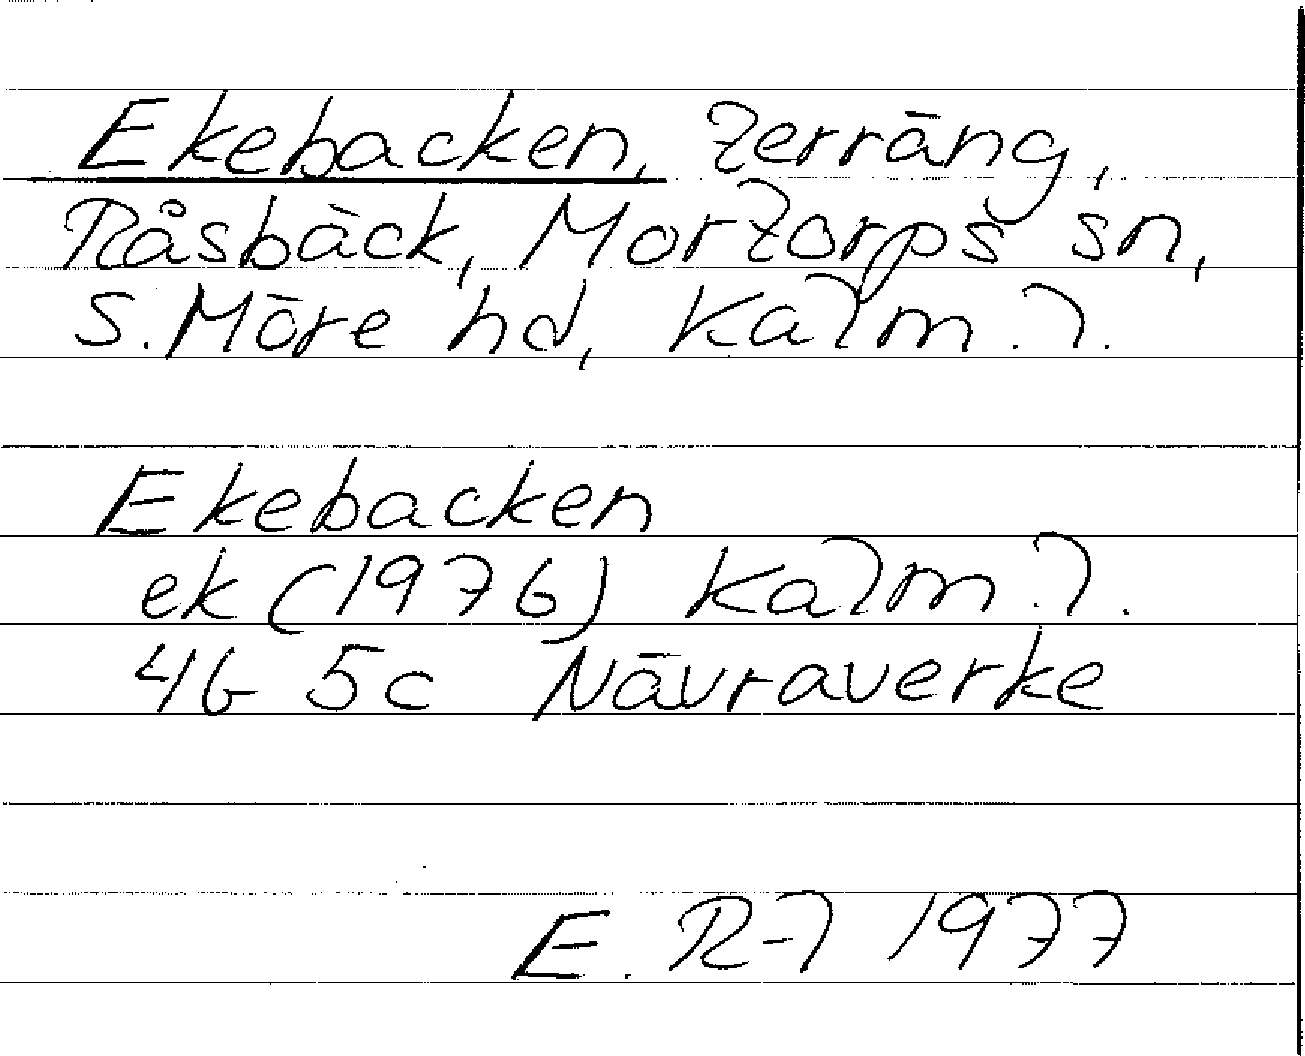 Ekebacken, terräng,
Råsbäck, Mortorps sn,
S. Möre hd, Kalm. l.
Ekebacken
ek (1976) Kalm. l.
4G 5c Nävraverke
E. R-l 1977